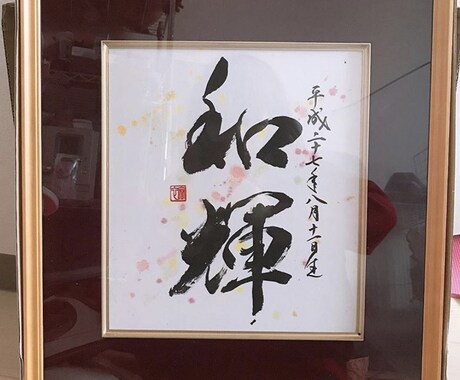 平成二十七年八月十一日生
和輝